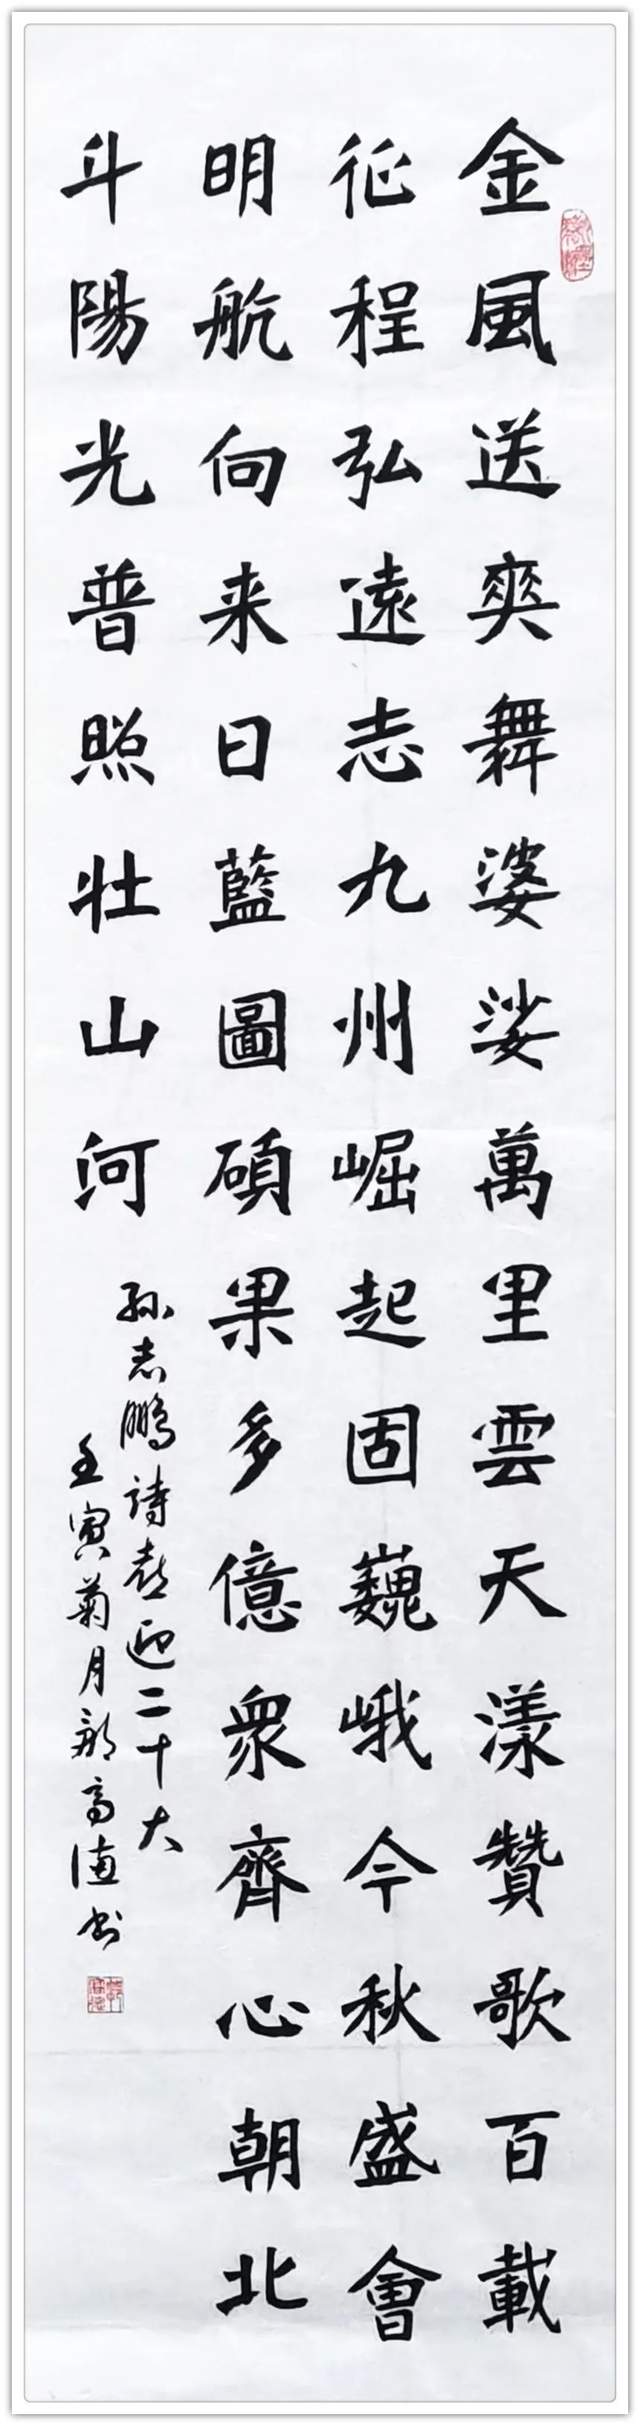 金風送爽舞婆娑萬里雲天漾贊歌百載
征程弘遠志九州崛起固巍峨今秋盛會
明航向来日藍圖碩果多億衆齊心朝北
斗陽光普照壯山河
孫志鵬詩喜迎二十大
壬寅菊月郭高德書